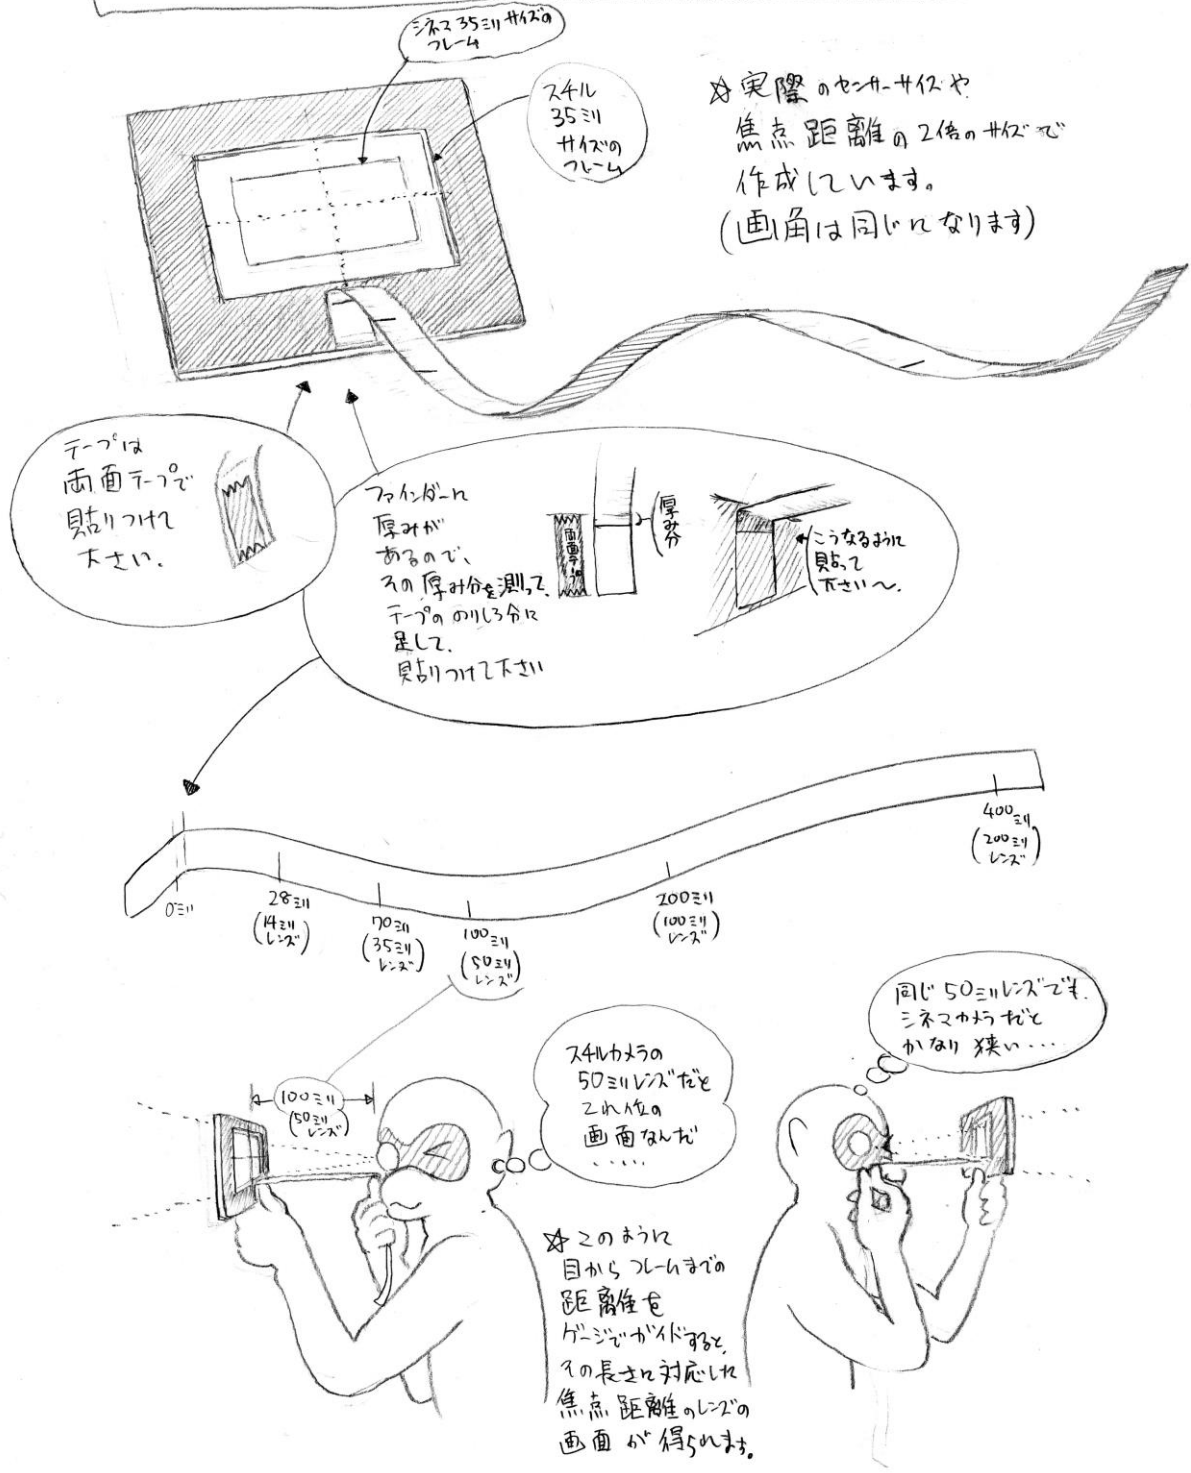 シネマ 35ミリ サイズの
フレーム
スチル
35ミリ
サイズの
フレーム
☆ 実際のセンサーサイズや
焦点距離の2倍のサイズで
作成しています。
(画角は同じになります)
テープは
両面テープで
貼りつけて
下さい.
ファインダーに
厚みが
あるので、
その厚み分を測って、
テープの のりしろ分に
足して、
貼りつけて下さい
両面テープ
厚み分
こうなるように
貼って
下さい〜.
0ミリ
28ミリ
(14ミリ
レンズ)
70ミリ
(35ミリ
レンズ)
100ミリ
(50ミリ
レンズ)
200ミリ
(100ミリ
レンズ)
400ミリ
(200ミリ
レンズ)
100ミリ
(50ミリ
レンズ)
スチルカメラの
50ミリレンズだと
これ位の
画面なんだ
.....
同じ50ミリレンズでも、
シネマカメラだと
かなり狭い....
☆ このように
目からフレームまでの
距離を
ゲージでガイドすると、
その長さに対応した
焦点距離のレンズの
画面が得られます。